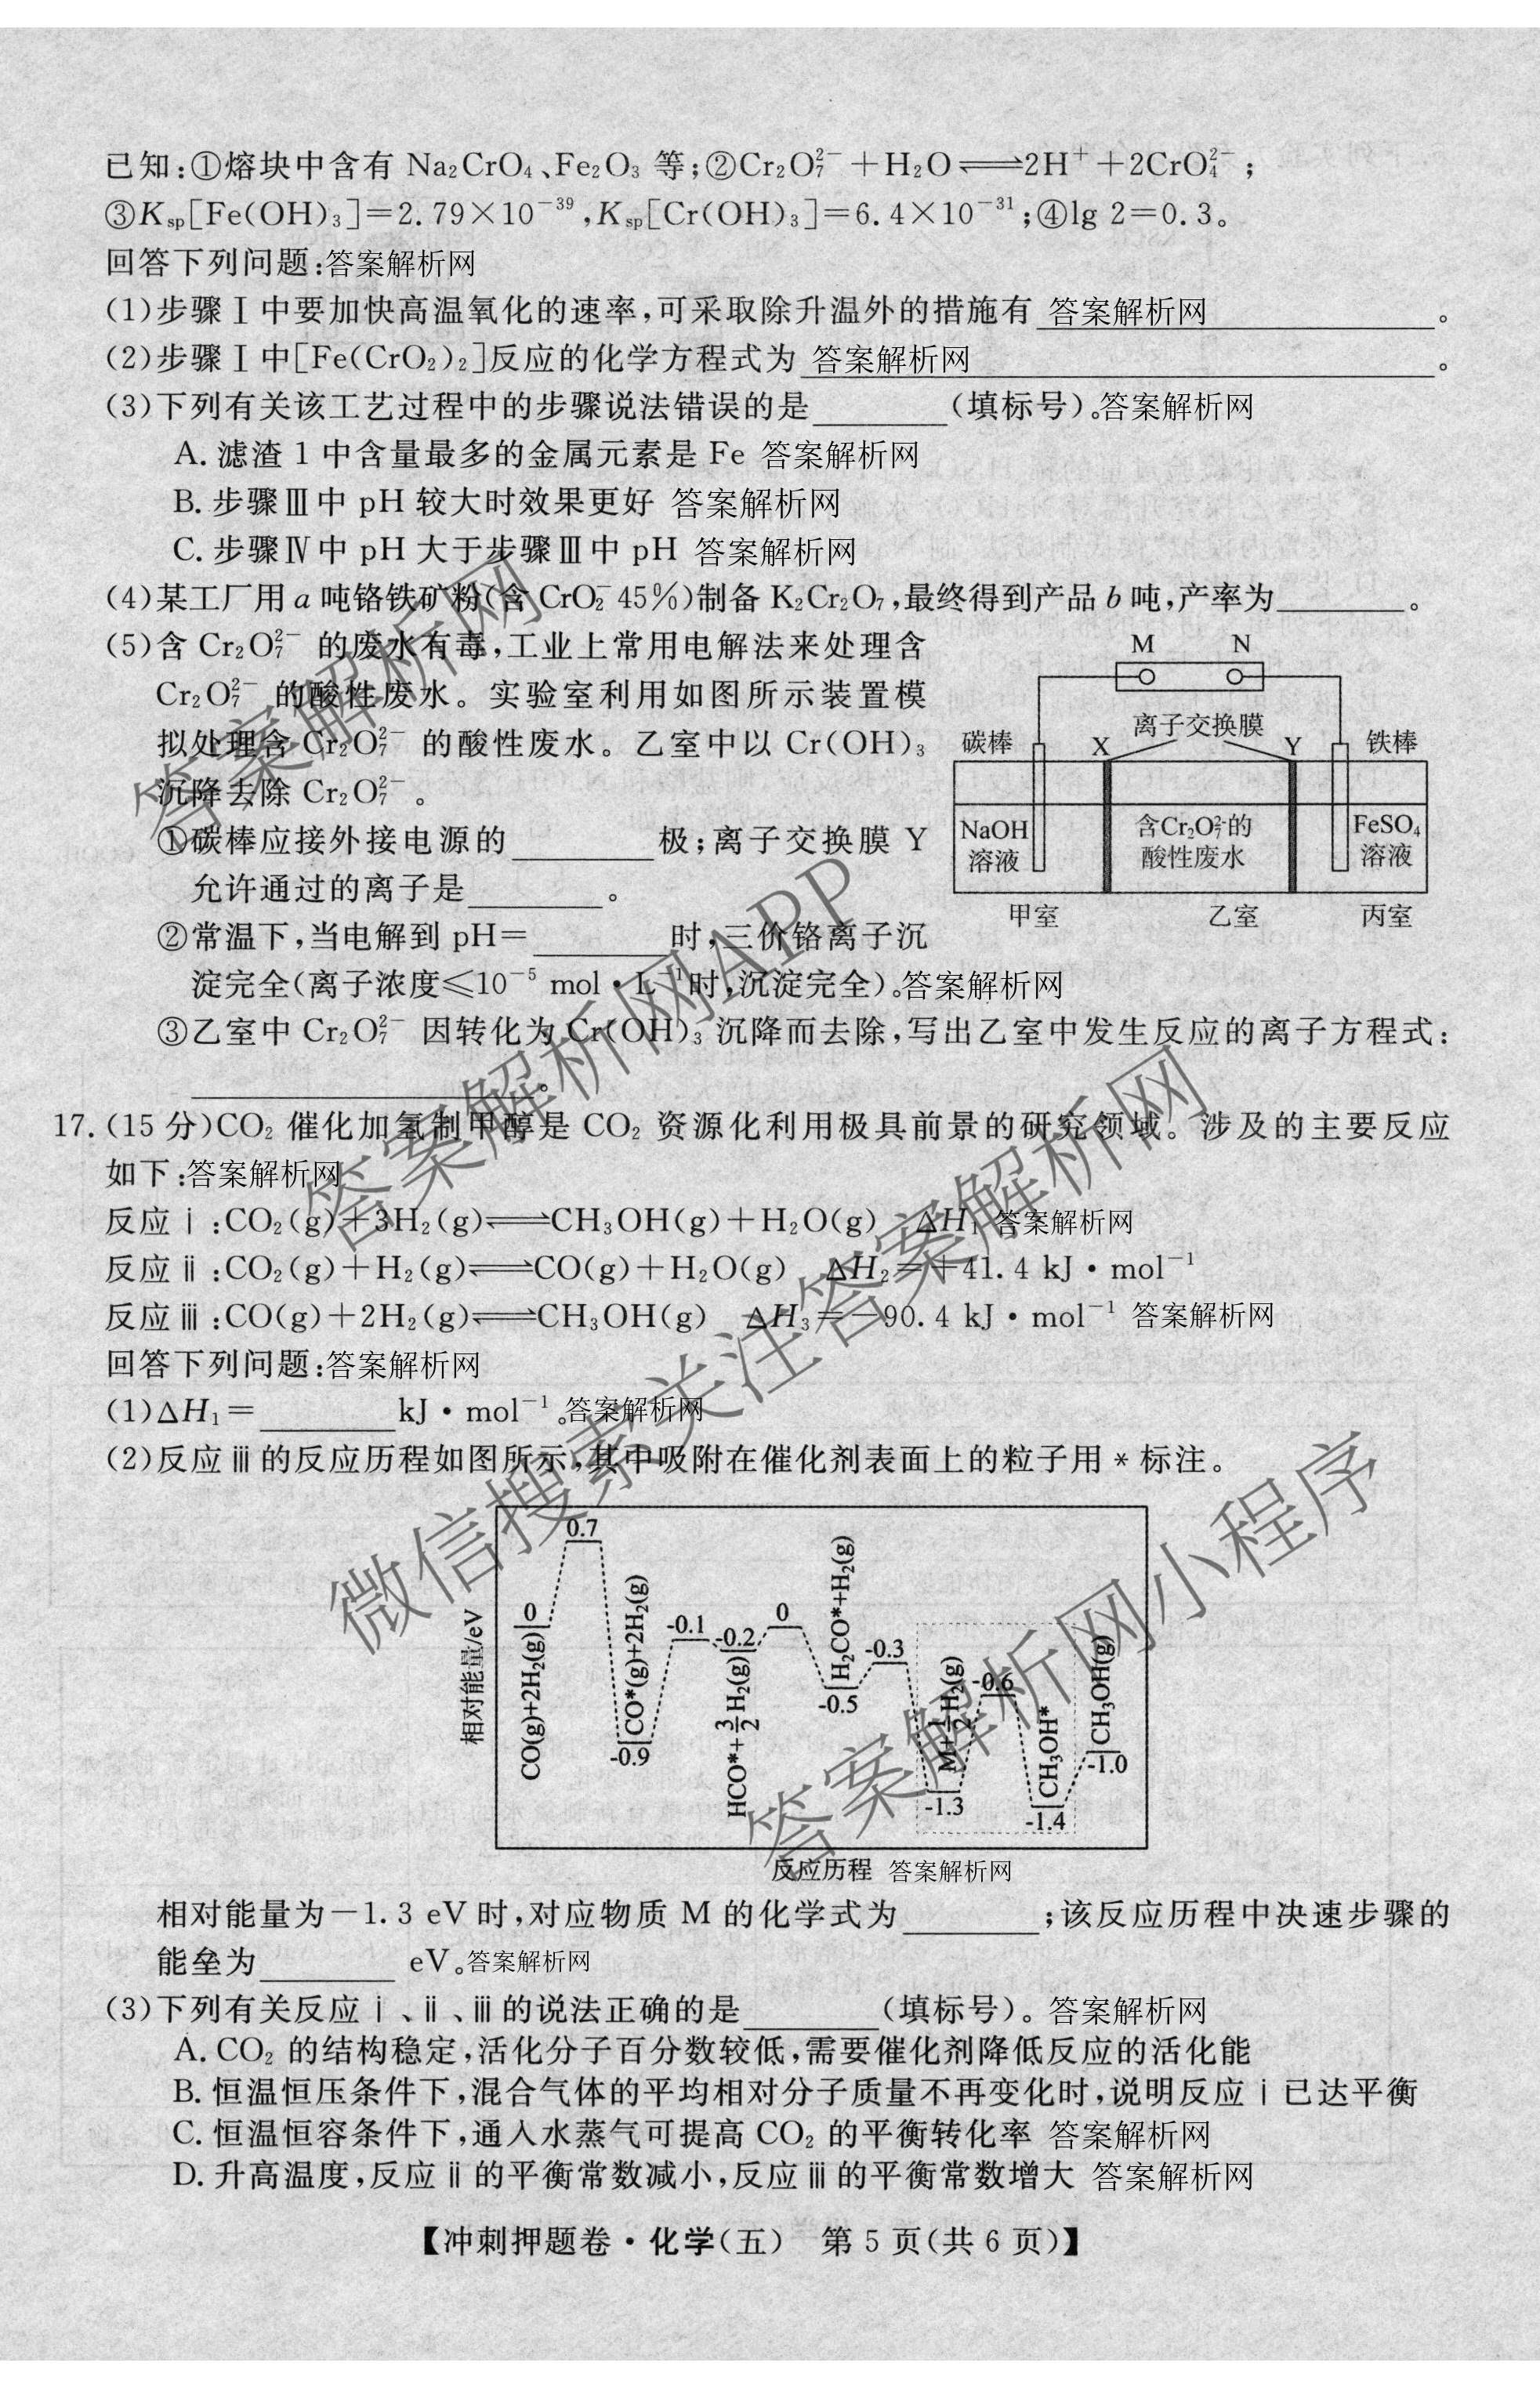 已知:①熔块中含有 Na₂CrO₄、Fe₂O₃ 等;②Cr₂O₇²⁻+H₂O⇌2H⁺+2CrO₄²⁻;
③Ksp[Fe(OH)₃]=2.79×10⁻³⁹,Ksp[Cr(OH)₃]=6.4×10⁻³¹;④lg 2=0.3。
回答下列问题:答案解析网
(1)步骤Ⅰ中要加快高温氧化的速率,可采取除升温外的措施有 答案解析网________。
(2)步骤Ⅰ中[Fe(CrO₂)₂]反应的化学方程式为 答案解析网________。
(3)下列有关该工艺过程中的步骤说法错误的是________(填标号)。答案解析网
A. 滤渣 1 中含量最多的金属元素是 Fe 答案解析网
B. 步骤Ⅲ中 pH 较大时效果更好 答案解析网
C. 步骤Ⅳ中 pH 大于步骤Ⅲ中 pH 答案解析网
(4)某工厂用 a 吨铬铁矿粉(含 CrO₂⁻ 45%)制备 K₂Cr₂O₇,最终得到产品 b 吨,产率为________。
(5)含 Cr₂O₇²⁻ 的废水有毒,工业上常用电解法来处理含
Cr₂O₇²⁻ 的酸性废水。实验室利用如图所示装置模
拟处理含 Cr₂O₇²⁻ 的酸性废水。乙室中以 Cr(OH)₃
沉降去除 Cr₂O₇²⁻。
①碳棒应接外接电源的________极;离子交换膜 Y
允许通过的离子是________。
②常温下,当电解到 pH=________时,三价铬离子沉
淀完全(离子浓度≤10⁻⁵ mol·L⁻¹时,沉淀完全)。答案解析网
③乙室中 Cr₂O₇²⁻ 因转化为 Cr(OH)₃ 沉降而去除,写出乙室中发生反应的离子方程式:
________。
M N
离子交换膜
碳棒 X Y 铁棒
NaOH
溶液
含Cr₂O₇²⁻的
酸性废水
FeSO₄
溶液
甲室 乙室 丙室
17.(15 分)CO₂ 催化加氢制甲醇是 CO₂ 资源化利用极具前景的研究领域。涉及的主要反应
如下:答案解析网
反应ⅰ:CO₂(g)+3H₂(g)⇌CH₃OH(g)+H₂O(g) ΔH₁ 答案解析网
反应ⅱ:CO₂(g)+H₂(g)⇌CO(g)+H₂O(g) ΔH₂=+41.4 kJ·mol⁻¹
反应ⅲ:CO(g)+2H₂(g)⇌CH₃OH(g) ΔH₃=−90.4 kJ·mol⁻¹ 答案解析网
回答下列问题:答案解析网
(1)ΔH₁=________ kJ·mol⁻¹。答案解析网
(2)反应ⅲ的反应历程如图所示,其中吸附在催化剂表面上的粒子用 * 标注。
相对能量/eV
0
CO(g)+2H₂(g)
0.7
-0.9
CO*(g)+2H₂(g)
-0.1
-0.2
HCO*+3/2H₂(g)
0
-0.5
H₂CO*+H₂(g)
-0.3
-1.3
M+1/2H₂(g)
-0.6
-1.4
CH₃OH*
-1.0
CH₃OH(g)
反应历程 答案解析网
相对能量为−1.3 eV 时,对应物质 M 的化学式为________;该反应历程中决速步骤的
能垒为________ eV。答案解析网
(3)下列有关反应ⅰ、ⅱ、ⅲ的说法正确的是________(填标号)。答案解析网
A. CO₂ 的结构稳定,活化分子百分数较低,需要催化剂降低反应的活化能
B. 恒温恒压条件下,混合气体的平均相对分子质量不再变化时,说明反应ⅰ已达平衡
C. 恒温恒容条件下,通入水蒸气可提高 CO₂ 的平衡转化率 答案解析网
D. 升高温度,反应ⅱ的平衡常数减小,反应ⅲ的平衡常数增大 答案解析网
【冲刺押题卷·化学(五) 第 5 页(共 6 页)】
答案解析网
答案解析网APP
微信搜索关注答案解析网
答案解析网小程序